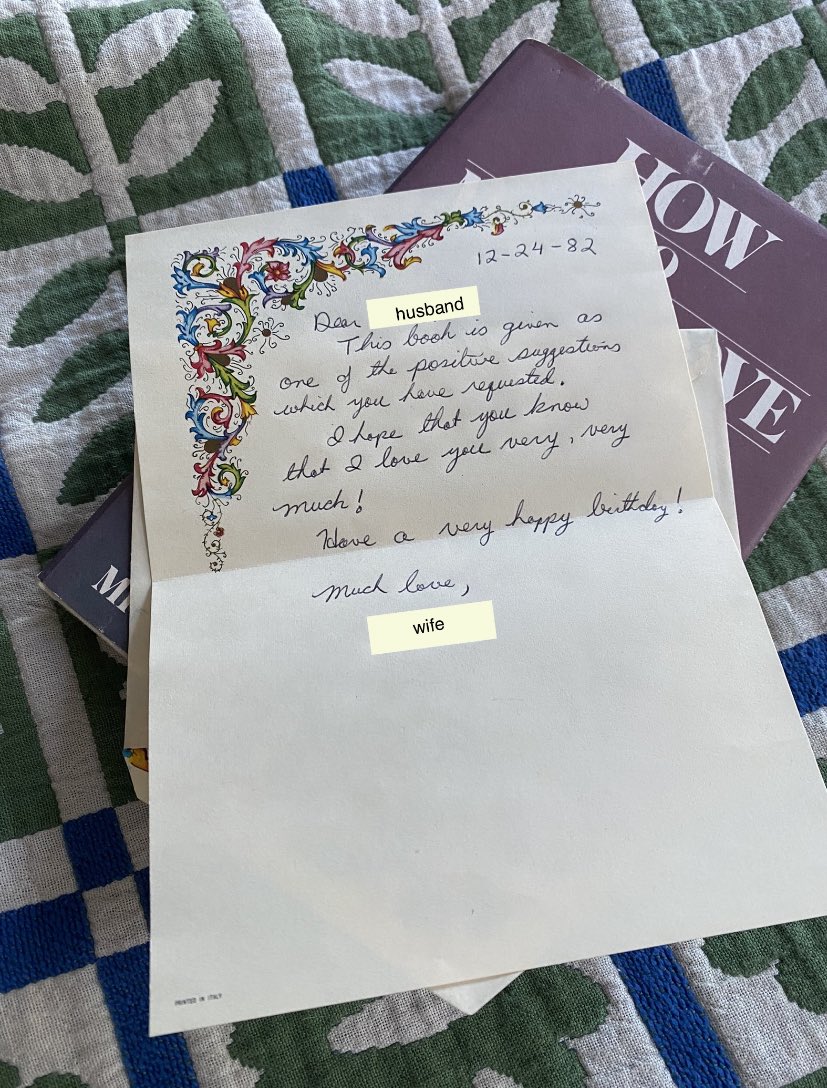 HOW
12-24-82
Dear husband
This book is given as
one of the positive suggestions
which you have requested.
I hope that you know
that I love you very, very
much!
Have a very happy birthday!
Much love,
wife
PRINTED IN ITALY